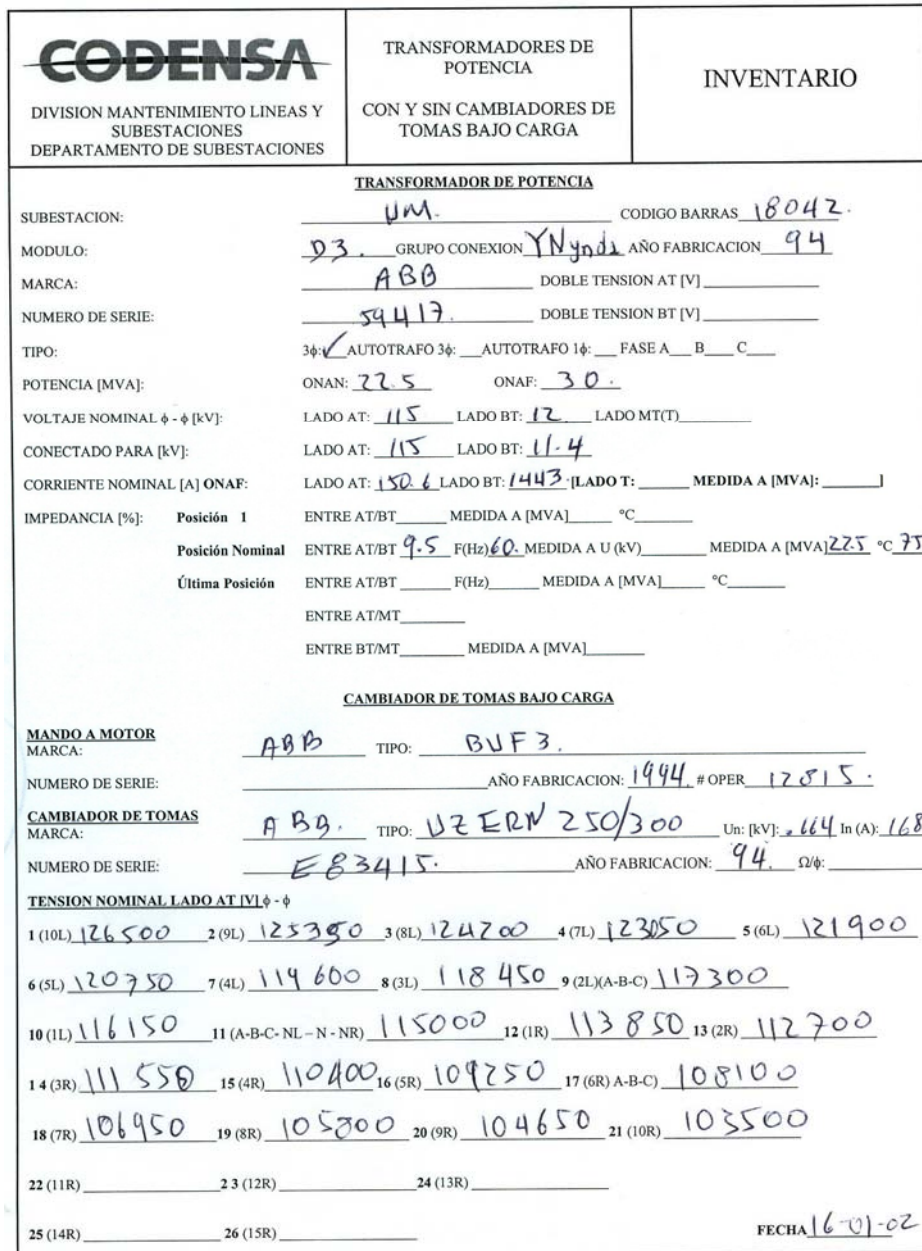 CODENSA
DIVISION MANTENIMIENTO LINEAS Y
SUBESTACIONES
DEPARTAMENTO DE SUBESTACIONES
TRANSFORMADORES DE
POTENCIA
CON Y SIN CAMBIADORES DE
TOMAS BAJO CARGA
INVENTARIO
TRANSFORMADOR DE POTENCIA
SUBESTACION: UM. CODIGO BARRAS 18042.
MODULO: D3. GRUPO CONEXION YNynd1 AÑO FABRICACION 94
MARCA: ABB DOBLE TENSION AT [V]
NUMERO DE SERIE: 59417. DOBLE TENSION BT [V]
TIPO: 3ϕ:✓ AUTOTRAFO 3ϕ: AUTOTRAFO 1ϕ: FASE A B C
POTENCIA [MVA]: ONAN: 22.5 ONAF: 30.
VOLTAJE NOMINAL ϕ - ϕ [kV]: LADO AT: 115 LADO BT: 12 LADO MT(T)
CONECTADO PARA [kV]: LADO AT: 115 LADO BT: 11.4
CORRIENTE NOMINAL [A] ONAF: LADO AT: 150.6 LADO BT: 1443 [LADO T: MEDIDA A [MVA]: ]
IMPEDANCIA [%]: Posición 1 ENTRE AT/BT MEDIDA A [MVA] °C
Posición Nominal ENTRE AT/BT 9.5 F(Hz) 60. MEDIDA A U (kV) MEDIDA A [MVA] 22.5 °C 75
Última Posición ENTRE AT/BT F(Hz) MEDIDA A [MVA] °C
ENTRE AT/MT
ENTRE BT/MT MEDIDA A [MVA]
CAMBIADOR DE TOMAS BAJO CARGA
MANDO A MOTOR
MARCA: ABB TIPO: BUF3.
NUMERO DE SERIE: AÑO FABRICACION: 1994. # OPER 12815.
CAMBIADOR DE TOMAS
MARCA: ABB. TIPO: UZERN 250/300 Un: [kV]: .664 In (A): 168
NUMERO DE SERIE: E83415. AÑO FABRICACION: 94. Ω/ϕ:
TENSION NOMINAL LADO AT [V] ϕ - ϕ
1 (10L) 126500 2 (9L) 125350 3 (8L) 124200 4 (7L) 123050 5 (6L) 121900
6 (5L) 120750 7 (4L) 119600 8 (3L) 118450 9 (2L)(A-B-C) 117300
10 (1L) 116150 11 (A-B-C- NL – N - NR) 115000 12 (1R) 113850 13 (2R) 112700
1 4 (3R) 111550 15 (4R) 110400 16 (5R) 109250 17 (6R) A-B-C) 108100
18 (7R) 106950 19 (8R) 105800 20 (9R) 104650 21 (10R) 103500
22 (11R) 2 3 (12R) 24 (13R)
25 (14R) 26 (15R) FECHA 16-01-02